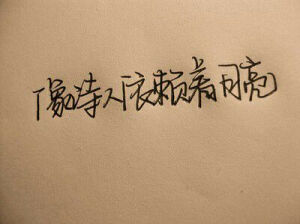 像诗人依赖着月亮